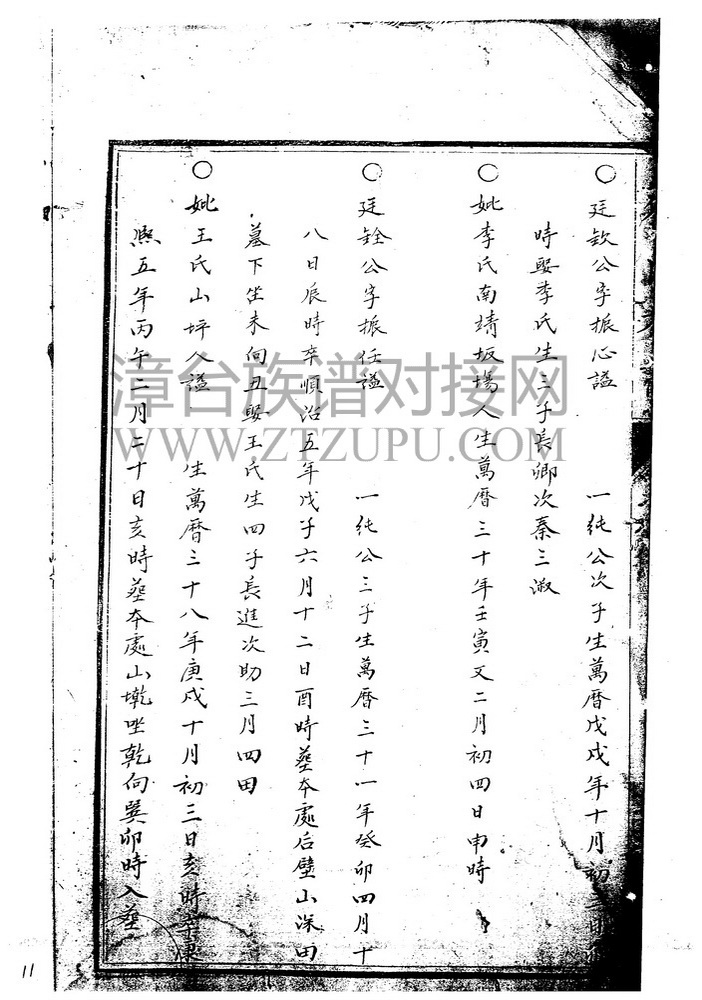 ○廷欽公字振心謚 一純公次子生萬曆戊戌年十月初
時娶李氏生三子長卿次秦三淑
○妣李氏南靖坂場人生萬曆三十年壬寅又二月初四日申時
○廷銓公字振任謚 一純公三子生萬曆三十一年癸卯四月十
八日辰時卒順治五年戊子六月十二日酉時塟本處后壁山深田
墓下坐未向丑娶王氏生四子長進次助三月四田
○妣王氏山坪人謚 生萬曆三十八年庚戌十月初三日亥時卒康
熈五年丙午二月二十日亥時塟本處山墘坐乾向巽卯時入塟
漳台族普对接网
WWW.ZTZUPU.COM
11